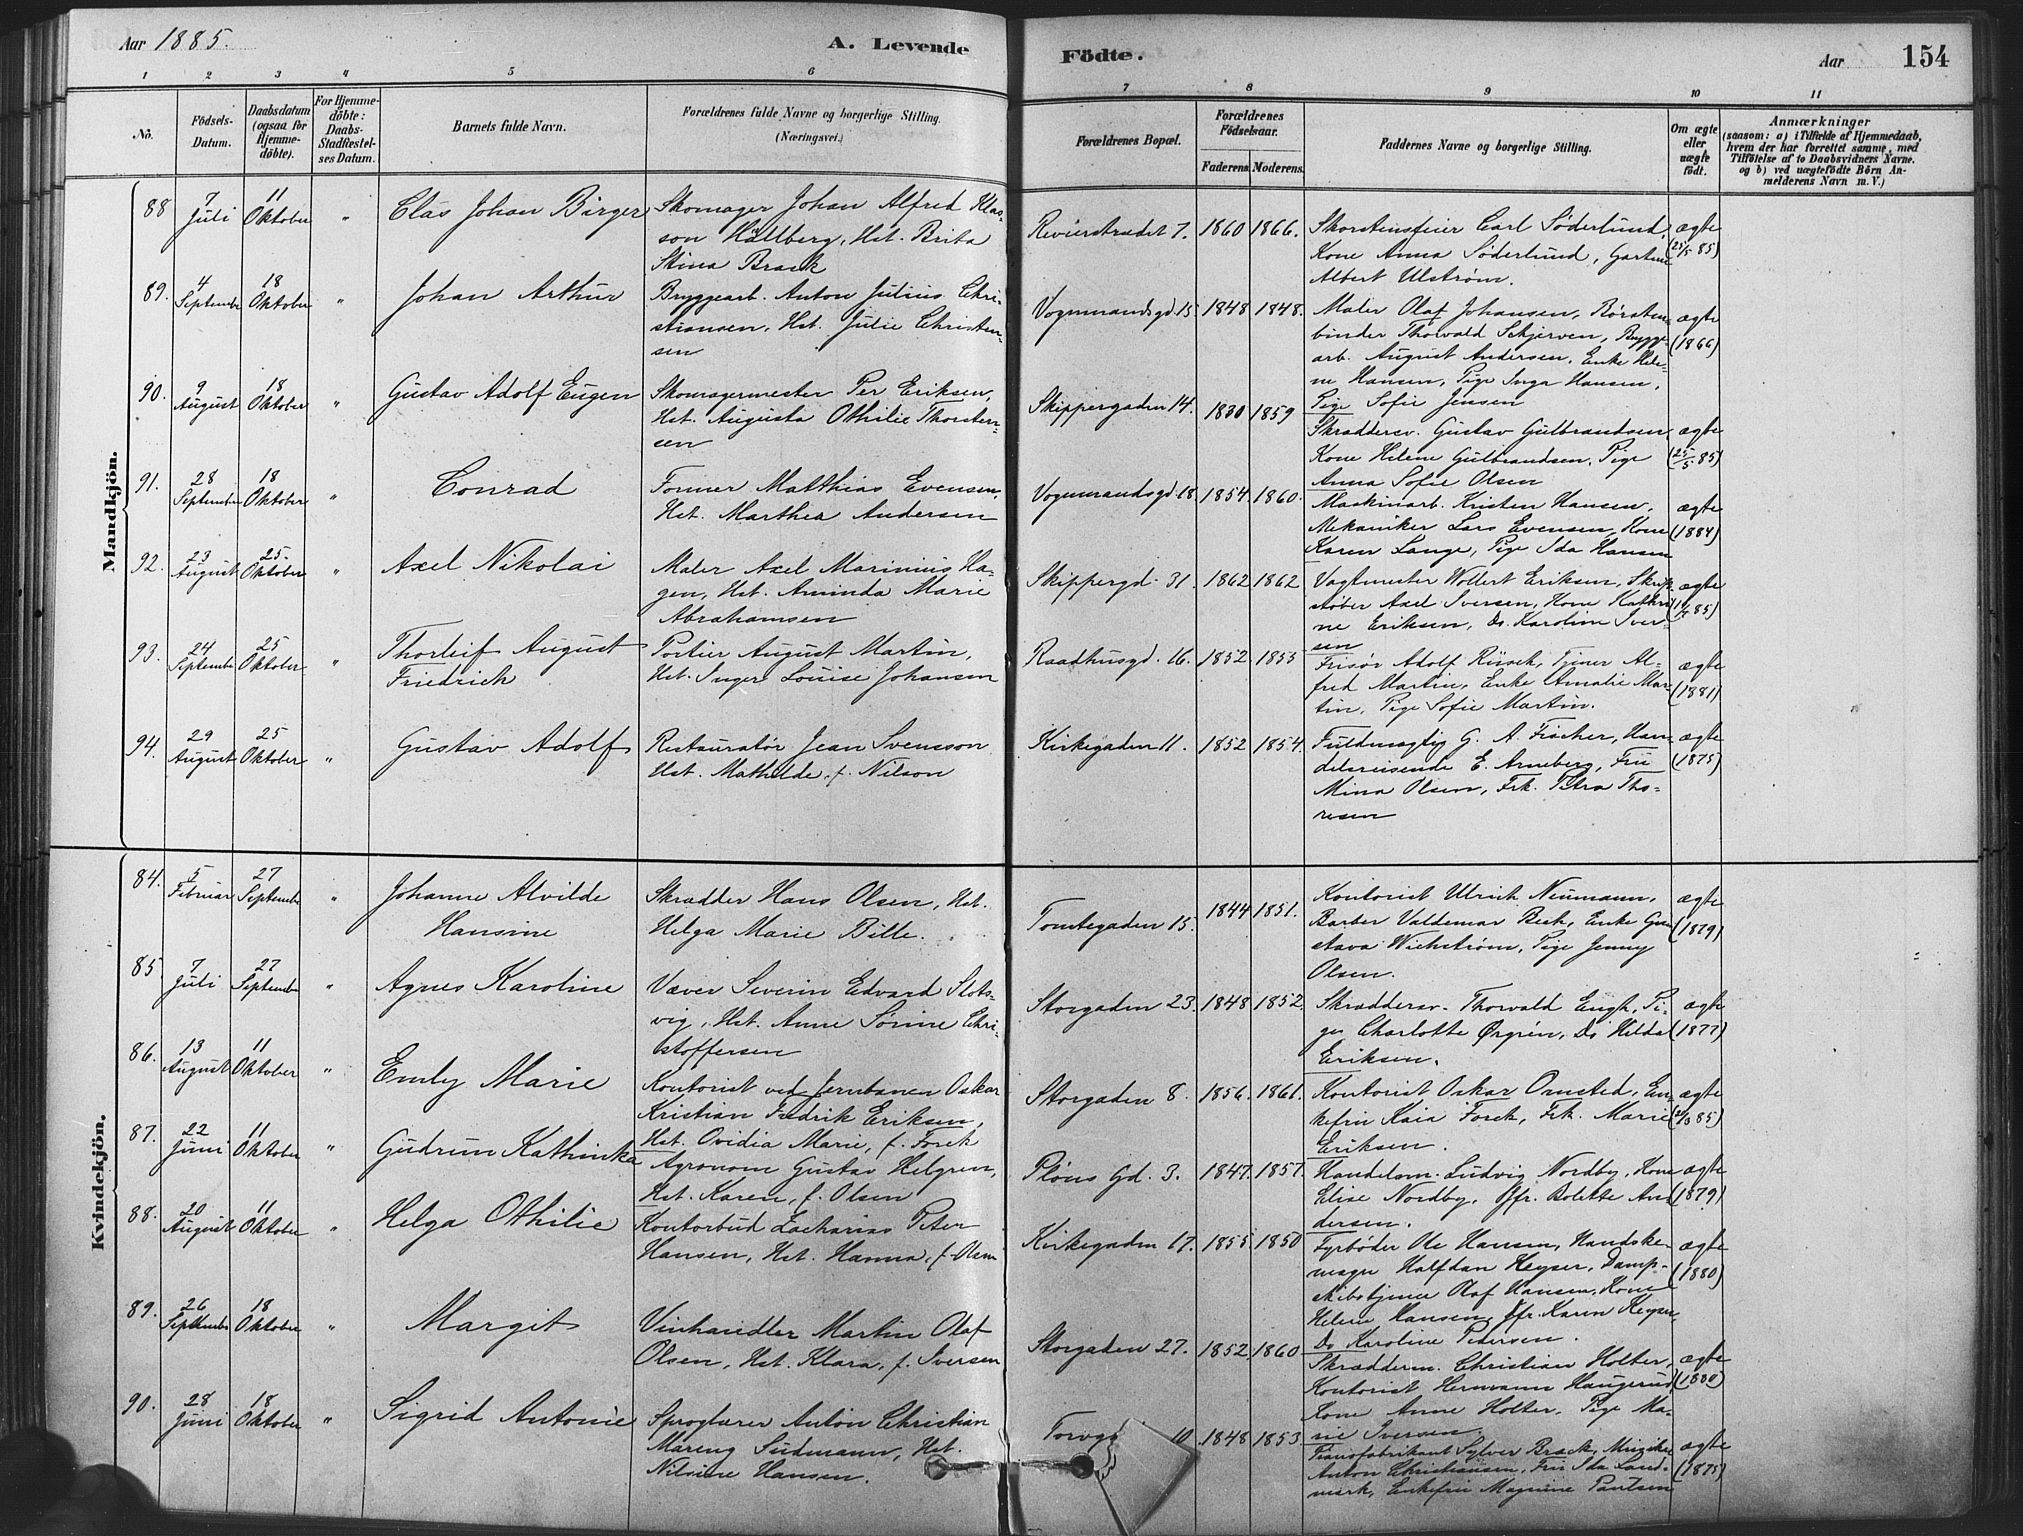 Aar 1885.
A. Levende
Födte.
Aar
154
1 2 3 4 5 6 7 8 9 10 11
No.
Födsels-
Datum.
Daabsdatum
(ogsaa for
Hjemme-
döbte).
For Hjemme-
döbte:
Daabs-
Stadfæstel-
ses Datum.
Barnets fulde Navn.
Forældrenes fulde Navne og borgerlige Stilling.
(Næringsvei.)
Forældrenes Bopæl.
Forældrenes
Födselsaar.
Faderens. Moderens.
Faddernes Navne og borgerlige Stilling.
Om ægte
eller
uægte
födt.
Anmærkninger
(saasom: a) i Tilfælde af Hjemmedaab,
hvem der har forrettet samme, med
Tilföielse af to Daabsvidners Navne.
og b) ved uægtefödte Börn An-
melderens Navn m. V.)
Mandkjön.
88 7 Juli 11 Oktober " Clas Johan Birger
Skomager Johan Alfred Klas-
son Hällberg, Hst. Brita
Stina Brack
Revierstrædet 7. 1860 1866.
Skorstensfeier Carl Söderlund,
Kone Anna Söderlund, Gartner
Albert Ulström.
ægte
(25/5 85)
89. 4 September 18 Oktober " Johan Arthur
Bryggearb. Anton Julius Chri-
stiansen, Hst. Julie Christen-
sen
Vognmandsgd. 15 1848 1848.
Maler Olaf Johansen, Börsten-
binder Thorvald Schjerven, Brygge-
arb. August Andersen, Enke Hele-
ne Hansen, Pige Inga Hansen,
Pige Sofie Jensen
ægte
(1866)
90. 9 August 18 Oktober " Gustav Adolf Eugen
Skomagermester Per Eriksen,
Hst. Augusta Othilie Thorsten-
sen
Skippergaden 14. 1830 1859
Skræddersv. Gustav Gulbrandsen,
Kone Helene Gulbrandsen, Pige
Anna Sofie Olsen
ægte
(25/5 85)
91. 28 September 18 Oktober " Conrad
Former Matthias Evensen,
Hst. Marthea Andersen
Vognmandsgd. 18. 1854. 1860.
Maskinarb. Kristen Hansen,
Mekaniker Lars Evensen, Kone
Karen Lange, Pige Ida Hansen
ægte
(1884)
92. 23 August 25. Oktober " Axel Nikolai
Maler Axel Marinius Ha-
gen, Hst. Aminda Marie
Abrahamsen
Skippergd. 31. 1862 1862
Vagtmester Wollert Eriksen,
støber Axel Iversen, Kone Kathri-
ne Eriksen, Do. Karoline Iver-
sen
ægte
93. 24 September 25 Oktober " Thorleif August
Friedrich
Portier August Martin,
Hst. Inger Louise Johansen
Raadhusgd. 16. 1852 1855
Frisør Adolf Tjener Al-
fred Martin, Enke Amalie Mar-
tin, Pige Sofie Martin.
ægte
(1881)
94. 29 August 25 Oktober " Gustav Adolf
Restauratør Jean Svensson
Hst. Mathilde, f. Nilson
Kirkegaden 11. 1852 1854.
Fuldmægtig G. A. Fischer, Han-
delsreisende E. Arneberg, Fru
Mina Olsen, Frk. Petra Tho-
resen
ægte
(1875)
Kvindekjön.
84. 5 Februar 27 September " Johanne Alvilde
Hansine
Skrædder Hans Olsen, Hst.
Helga Marie Bille.
Tomtegaden 15. 1844 1851.
Kontorist Ulrich Neumann,
Barber Valdemar Beck, Enke Gu-
stava Wichstrøm, Pige Jenny
Olsen.
ægte
(1879)
85 7 Juli 27 September " Agnes Karoline
Væver Severin Edvard Slots-
vig, Hst. Anne Sørine Chri-
stoffersen
Storgaden 23. 1848 1852
Skræddersv. Thorvald Engh, Pi-
ge Charlotte Ørgrén, Do Hilda
Eriksen.
ægte
(1877)
86. 13 August 11 Oktober " Emly Marie
Kontorist ved Jernbanen Oskar
Kristian Fredrik Eriksen,
Hst. Ovidia Marie, f. Forck
Storgaden 8. 1856. 1861.
Kontorist Oskar Omsted, En-
kefru Kaia Forck, Frk. Marie
Eriksen.
ægte
87. 22 Juni 11 Oktober " Gudrun Kathinka
Agronom Gustav Helgren,
Hst. Karen, f. Olsen
Pløns Gd. 3. 1847. 1857.
Handelsm. Ludvig Nordby, Kone
Elise Nordby, Jfr. Bolette An-
dersen.
ægte
(1879)
88. 20 August 11 Oktober " Helga Othilie
Kontorbud Zacharias Peter
Hansen, Hst. Hanna, f. Olsen
Kirkegaden 17. 1855. 1850
Fyrbøder Ole Hansen, Handske-
mager Halfdan Heyser, Damp-
skibstjener Olaf Hansen, Kone
Helene Hansen, Jfr. Karen Heyser,
Do Karoline Pedersen.
ægte
(1880)
89. 26 September 18 Oktober " Margit
Vinhandler Martin Olaf
Olsen, Hst. Klara, f. Iversen
Storgaden 27. 1852 1860
Skrædderm. Christian Holter,
Kontorist Hermann Haugerud,
Kone Anne Holter, Pige Ma-
rie Iversen.
ægte
(1880)
90. 28 Juni 18 Oktober " Sigrid Antonie
Sproglærer Anton Christian
Mareng Sudmann, Hst.
Nilsine Hansen.
10 1848 1853
Pianofabrikant Sylver Brack, Musiker
Anton Christiansen, Fru Ida Land-
mark, Enkefru Magnine Paulsen
ægte
(1875)